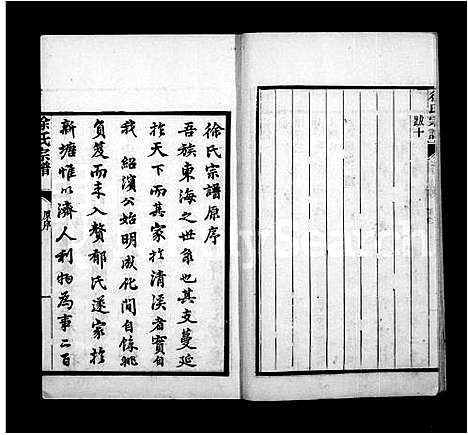 徐氏宗譜
跋十
徐氏宗譜原序
吾族東海之世家也其支蔓延
於天下而其家於清溪者實自
我 紹濱公始明成化間自餘姚
負笈而來入贅郁氏遂家於
新塘惟以濟人利物為事二百
徐氏宗譜
原序
一